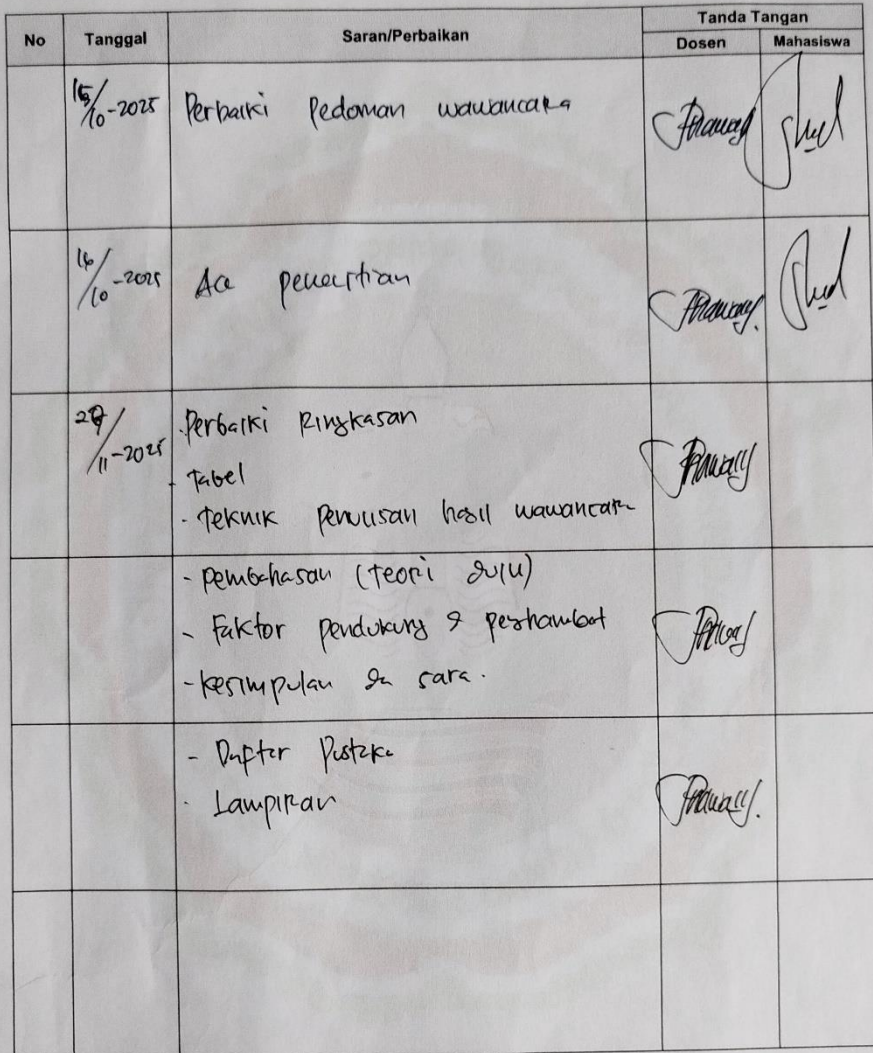 No Tanggal Saran/Perbaikan Tanda Tangan
Dosen Mahasiswa
15/10-2025 Perbaiki Pedoman wawancara
16/10-2025 Acc penelitian
/11-2025 Perbaiki Ringkasan
- Tabel
- Teknik penulisan hasil wawancara
- pembahasan (teori dulu)
- Faktor pendukung & penghambat
- Kesimpulan dan sara.
- Daftar Pustaka
- Lampiran